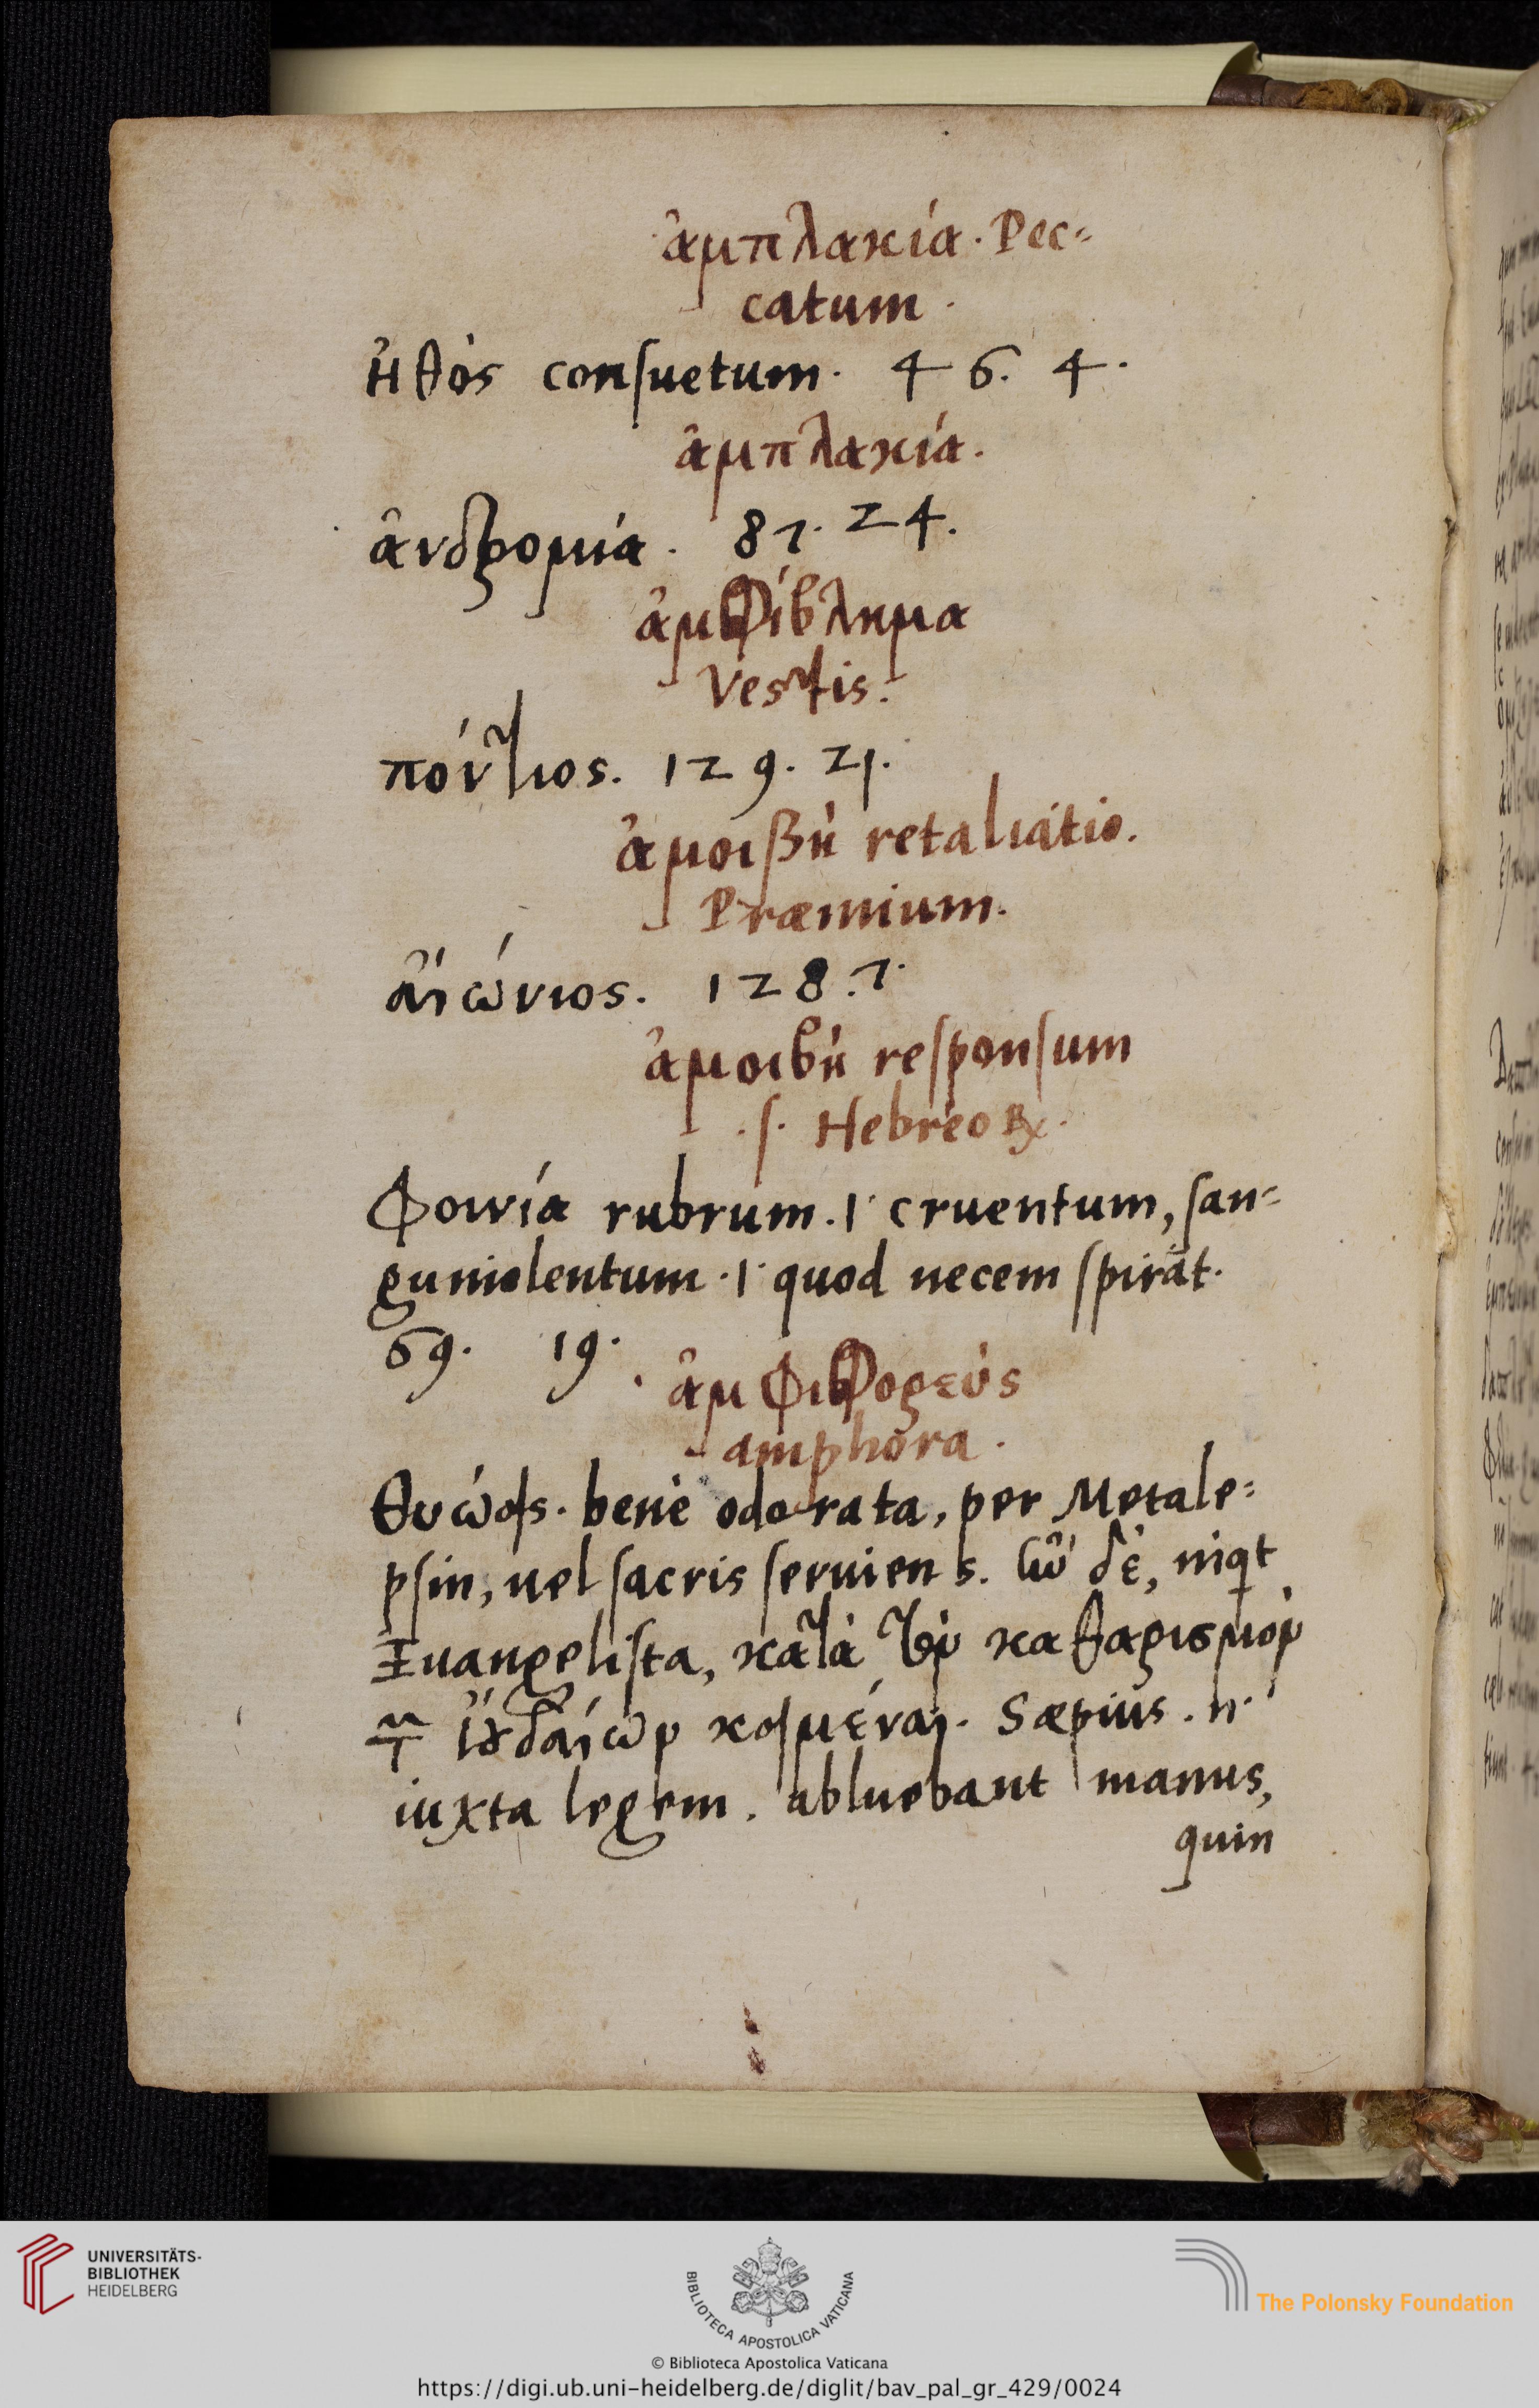 ἀμπλακία. Pec=
catum.
ἠθὸς consuetum. 46. 4.
ἀμπλακία.
ἀνδρομία. 87. 24.
ἀμφίβλημα
Vestis.
πόντιος. 129. 21.
ἀμοιβὴ retaliatio.
Præmium.
αἰώνιος. 128. 7.
ἀμοιβὴ responsum
.s. Hebreoꝝ.
φοινία rubrum. l· cruentum, san=
guniolentum. l· quod necem spirat.
69. 19.
ἀμφιφορεύς
amphora.
θυώδης. bene odorata, per Metale=
psin, uel sacris seruiens. δὲ,
Euangelista, κατὰ τὸν καθαρισμὸν
τῶν ἰουδαίων κείμεναι. Sæpius. n·
iuxta legem. abluebant manus,
quin
UNIVERSITÄTS-
BIBLIOTHEK
HEIDELBERG
BIBLIOTECA APOSTOLICA VATICANA
The Polonsky Foundation
© Biblioteca Apostolica Vaticana
https://digi.ub.uni-heidelberg.de/diglit/bav_pal_gr_429/0024